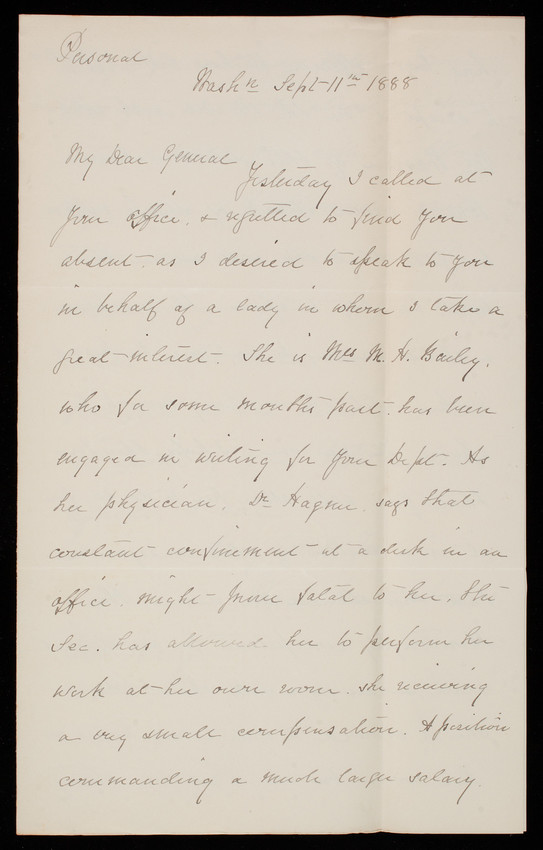 Personal
Washn Sept 11th 1888
My Dear General
Yesterday I called at
your office, & regretted to find you
absent, as I desired to speak to you
in behalf of a lady in whom I take a
great interest. She is Mrs M. H. Bailey,
who for some months past, has been
engaged in writing for your Dept. As
her physician, Dr Hagner, says that
constant confinement at a desk in an
office, might prove fatal to her, the
Sec. has allowed her to perform her
work at her own room, she receiving
a very small compensation. A position
commanding a much larger salary